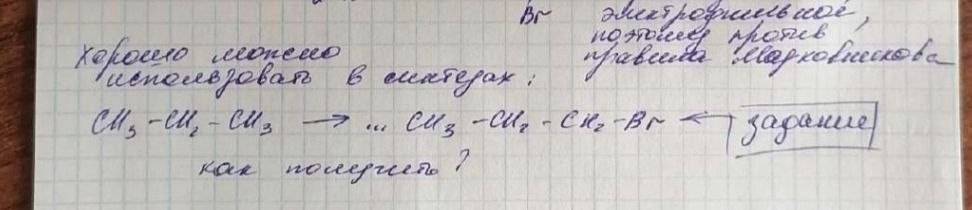 Br электрофильное,
поэтому против
Хорошо можно правила Марковникова
использовать в синтезах:
CH3 - CH2 - CH3 → ... CH3 - CH2 - CH2 - Br ← задание
как получить?